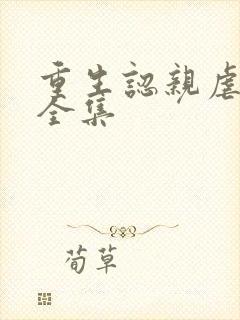 重生認親虐
全集
荀草